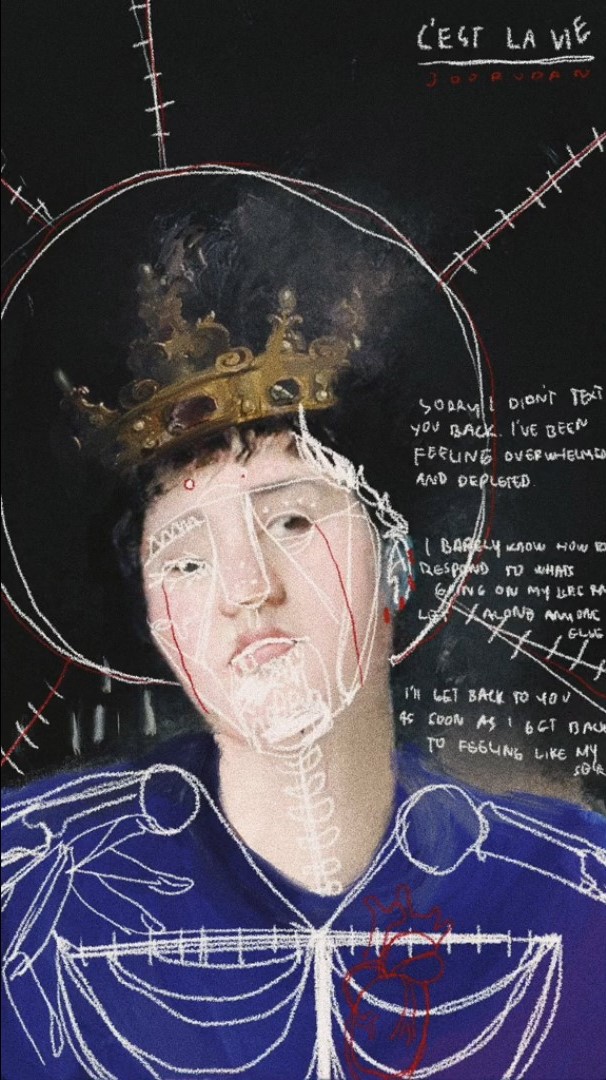 C'EST LA VIE
JOORUDAN
SORRY I DIDN'T TEXT
YOU BACK. I'VE BEEN
FEELING OVERWHELMED
AND DEPLETED.
I BARELY KNOW HOW TO
RESPOND TO WHATS
GOING ON MY LIFE
LET ALONE ANYONE
ELSE
I'LL GET BACK TO YOU
AS SOON AS I GET BACK
TO FEELING LIKE MY
SELF